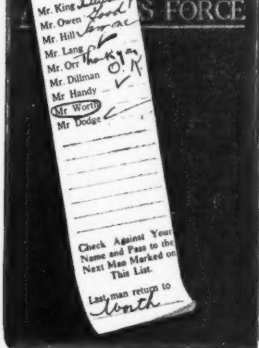 S FORCE
Mr. King
Mr. Owen Good!
Mr. Hill
Mr. Lang
Mr. Orr Thank you
Mr. Dillman O.K
Mr Handy
Mr Worth
Mr Dodge
Check Against Your
Name and Pass to the
Next Man Marked on
This List.
Last man return to
Worth